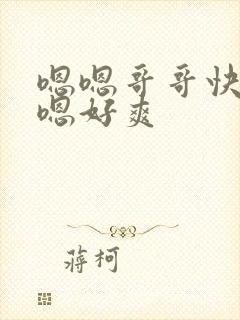 嗯嗯哥哥快
嗯好爽
蒋柯